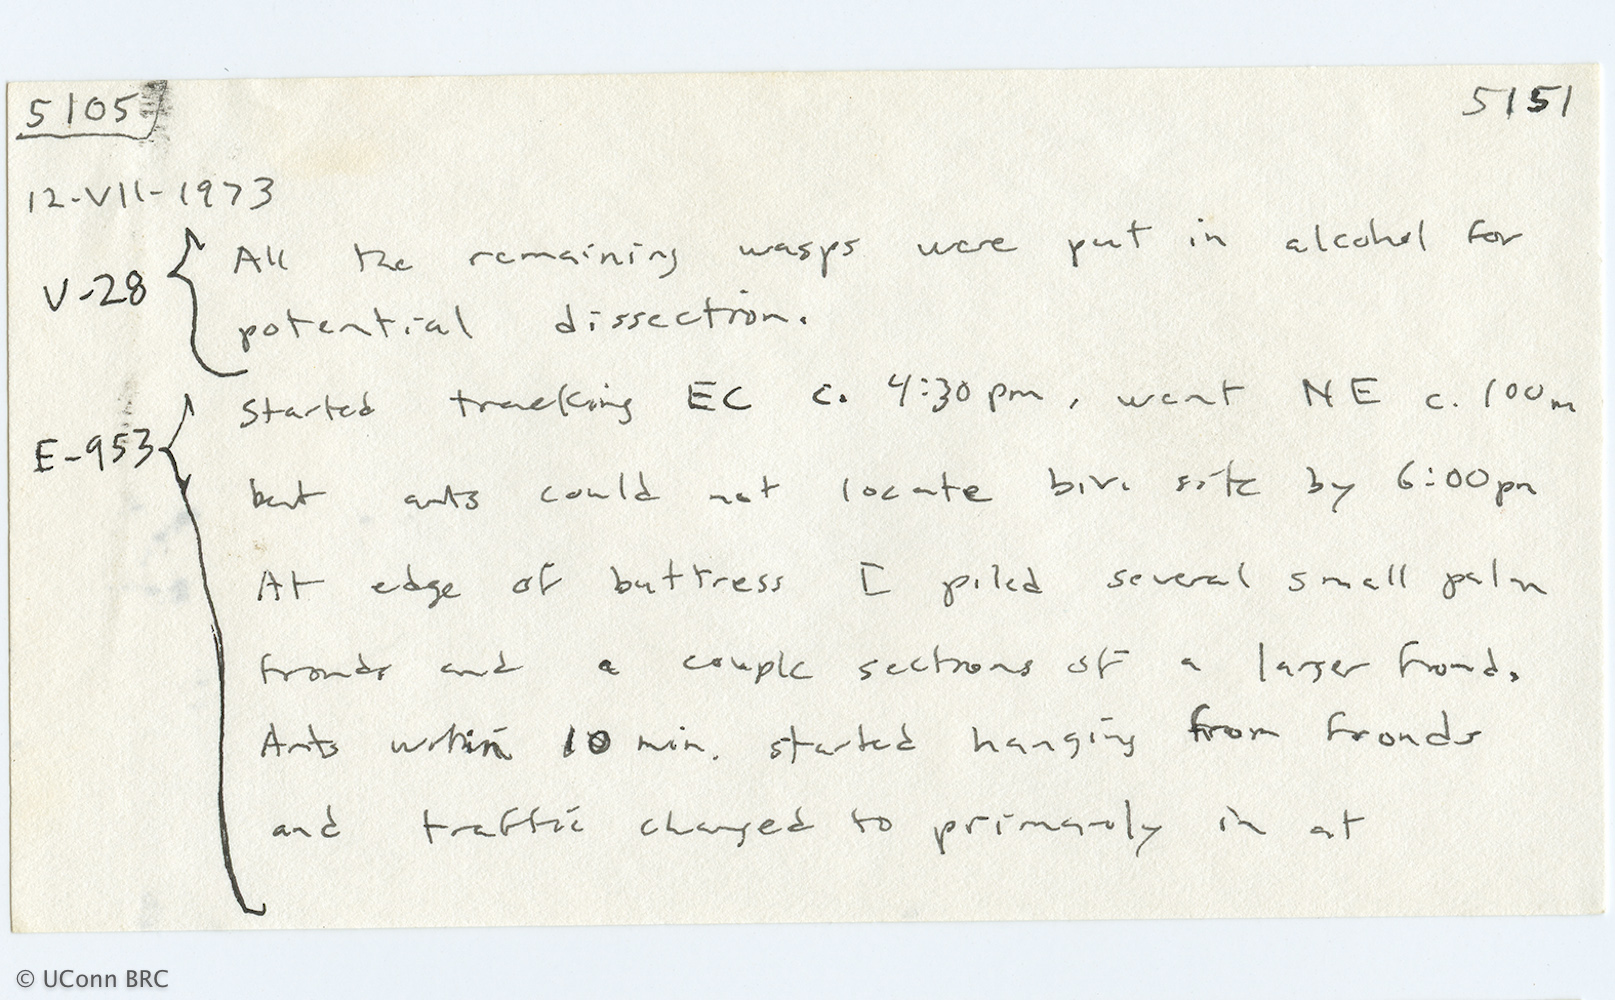 5105 5151
12-VII-1973
V-28 All the remaining wasps were put in alcohol for
potential dissection.
Started tracking EC c. 4:30pm, went NE c. 100m
E-953
but ants could not locate biv. site by 6:00pm
At edge of buttress I piled several small palm
fronds and a couple sections of a larger frond.
Ants within 10 min. started hanging from fronds
and traffic changed to primarily in at
© UConn BRC